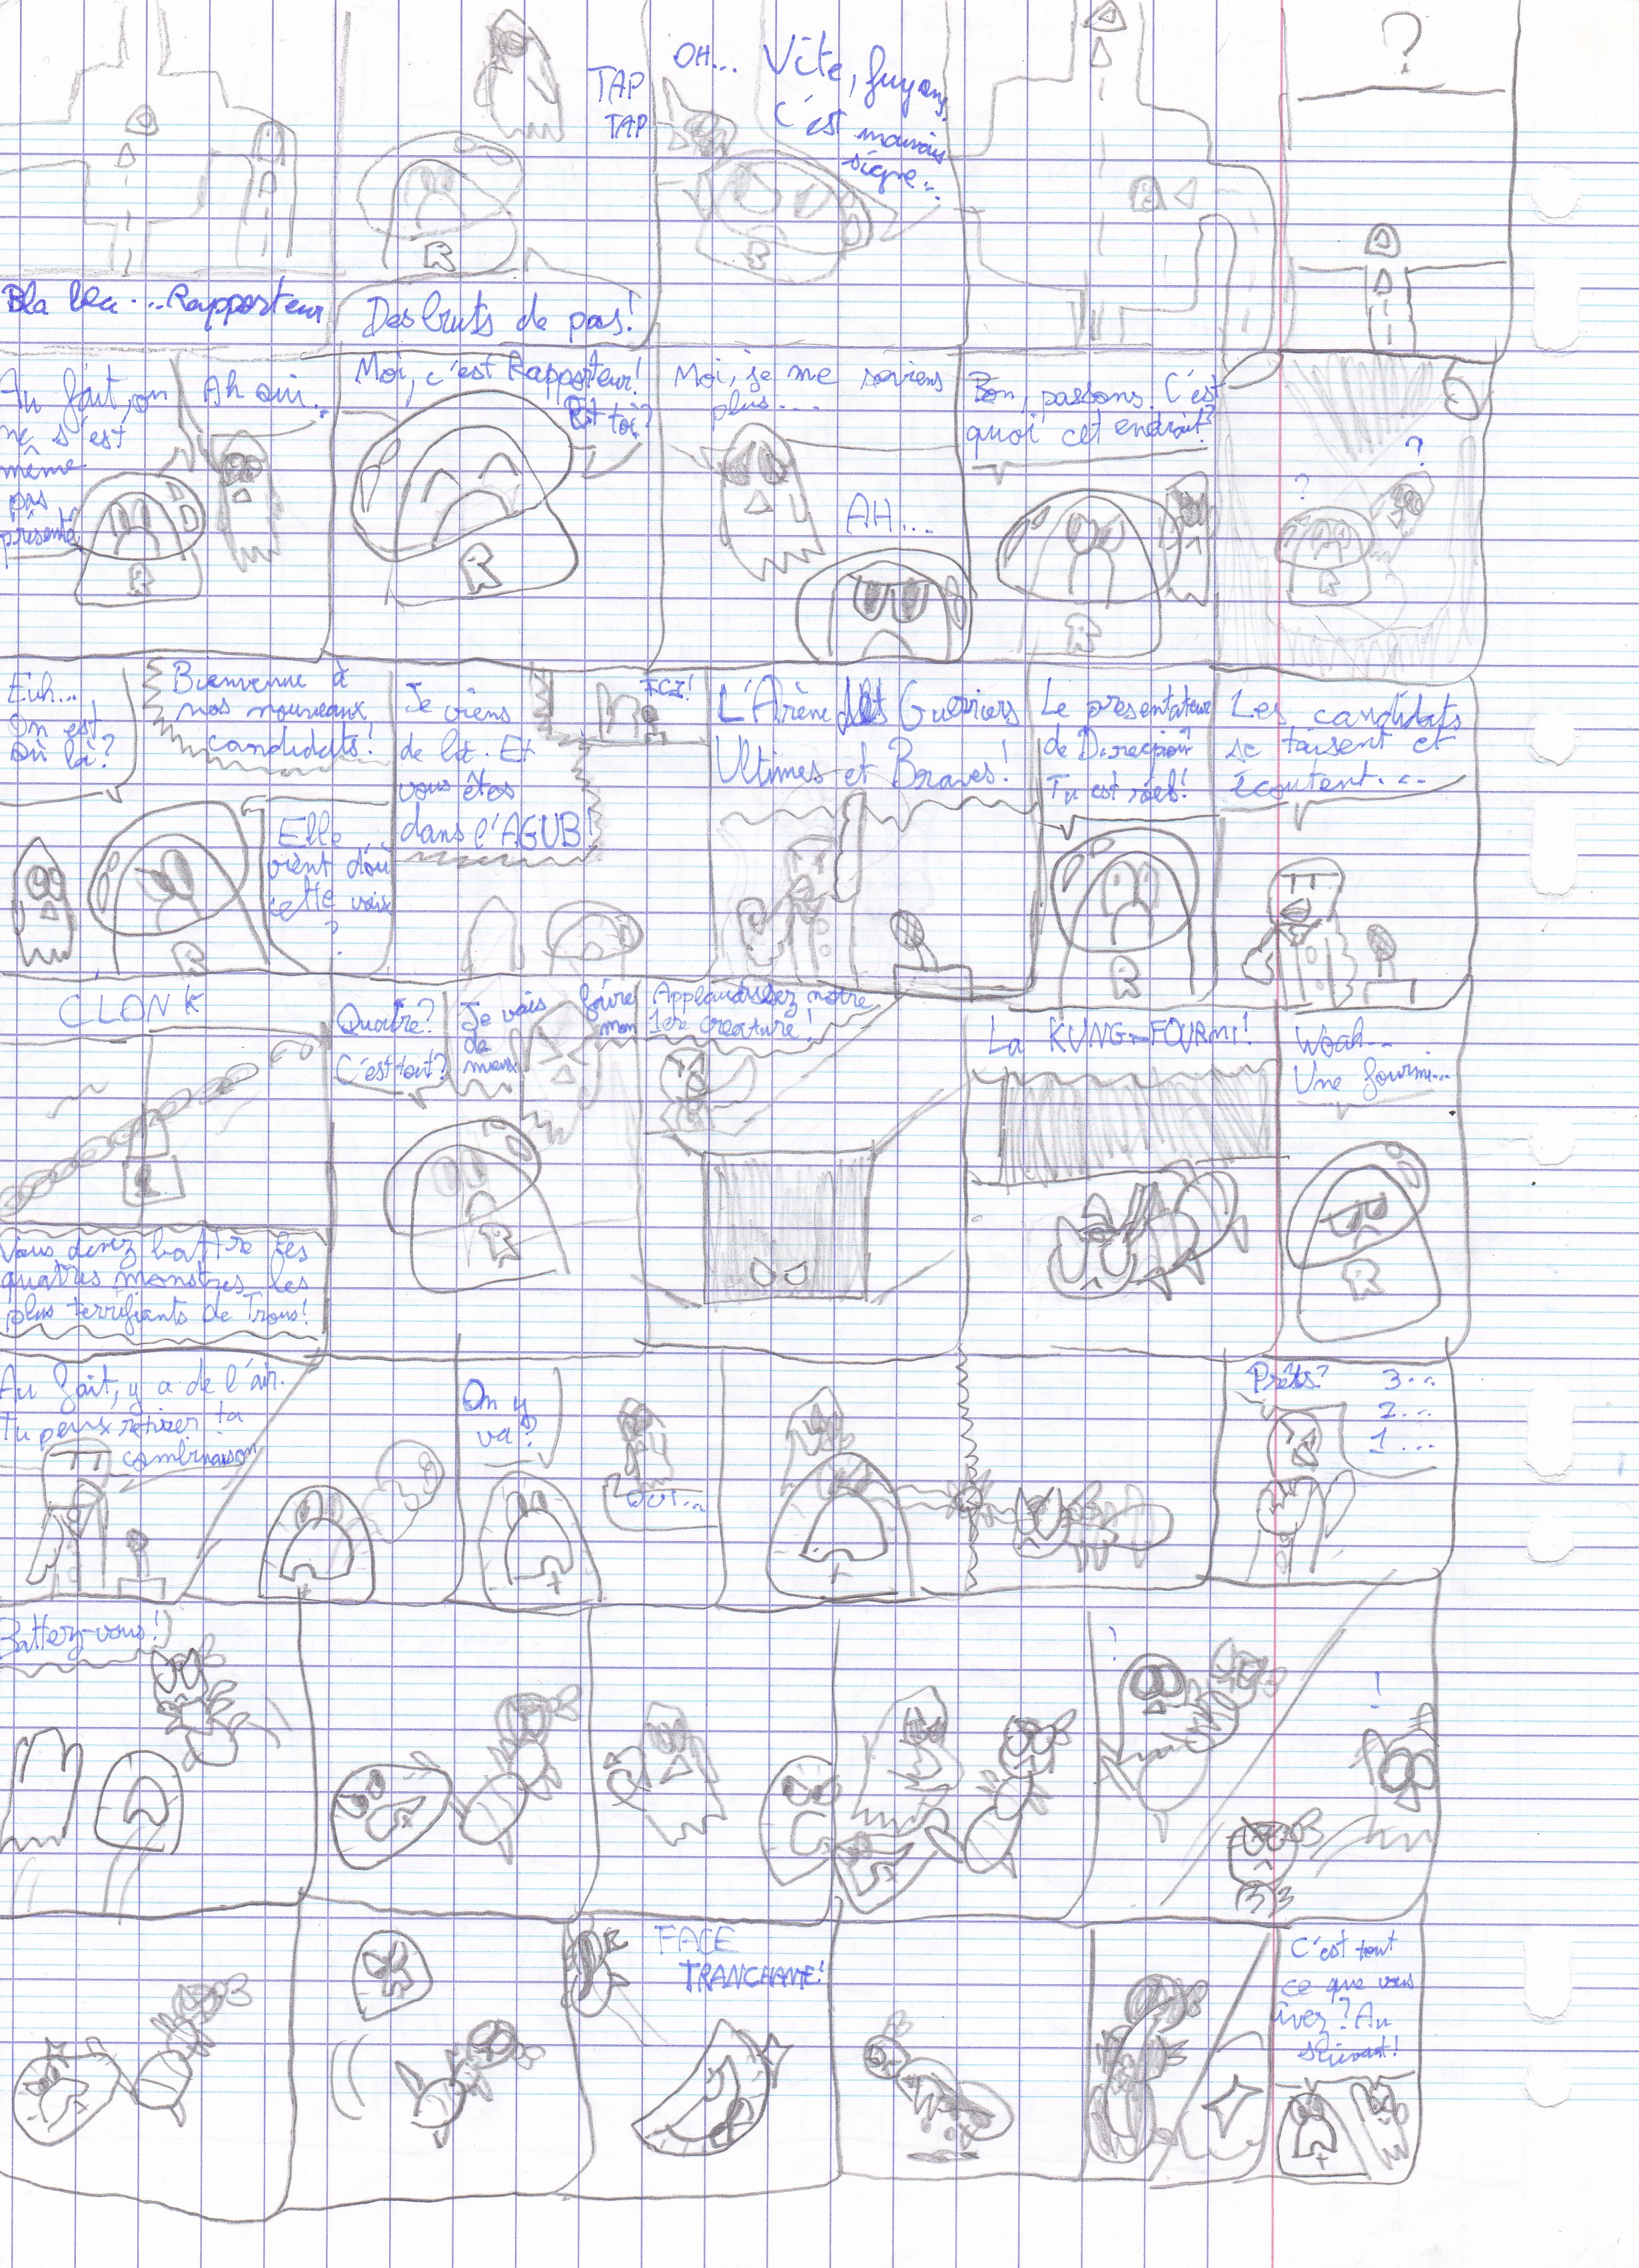 TAP
TAP
OH... Vite, fuyons,
C'est mauvais
signe...
?
Bla bla... Rapporteur
Des bruts de pas!
Au fait, on
ne s'est
même
pas
présenté
Ah oui...
Moi, c'est Rapporteur!
Et toi?
Moi, je me soviens
plus...
AH...
Bon, passons. C'est
quoi cet endroit?
?
?
Euh...
On est
où là?
Bienvenue à
nos nouveaux
candidats!
Elle
vient d'où
cette voix
?
Je viens
de là. Et
vous êtes
dans l'AGUB!
ICI!
L'Arène des Guerriers
Ultimes et Braves!
Le présentateur
de
Tu est réel!
Les candidats
se taisent et
écoutent...
CLONK
Vous devez battre les
quatres monstres les
plus terrifiants de Trous!
Quatre?
C'est tout?
Je vais faire
de mon
mieux
Applaudissez notre
1ere créature!
La KUNG-FOURMI!
Woah...
Une fourmi...
Au fait, y a de l'air.
Tu peux retirer ta
combinaison
On y
va?
OUI...
Prêts? 3...
2...
1...
Battez-vous!
!
!
FACE
TRANCHANTE!
C'est tout
ce que vous
avez? Au
suivant!